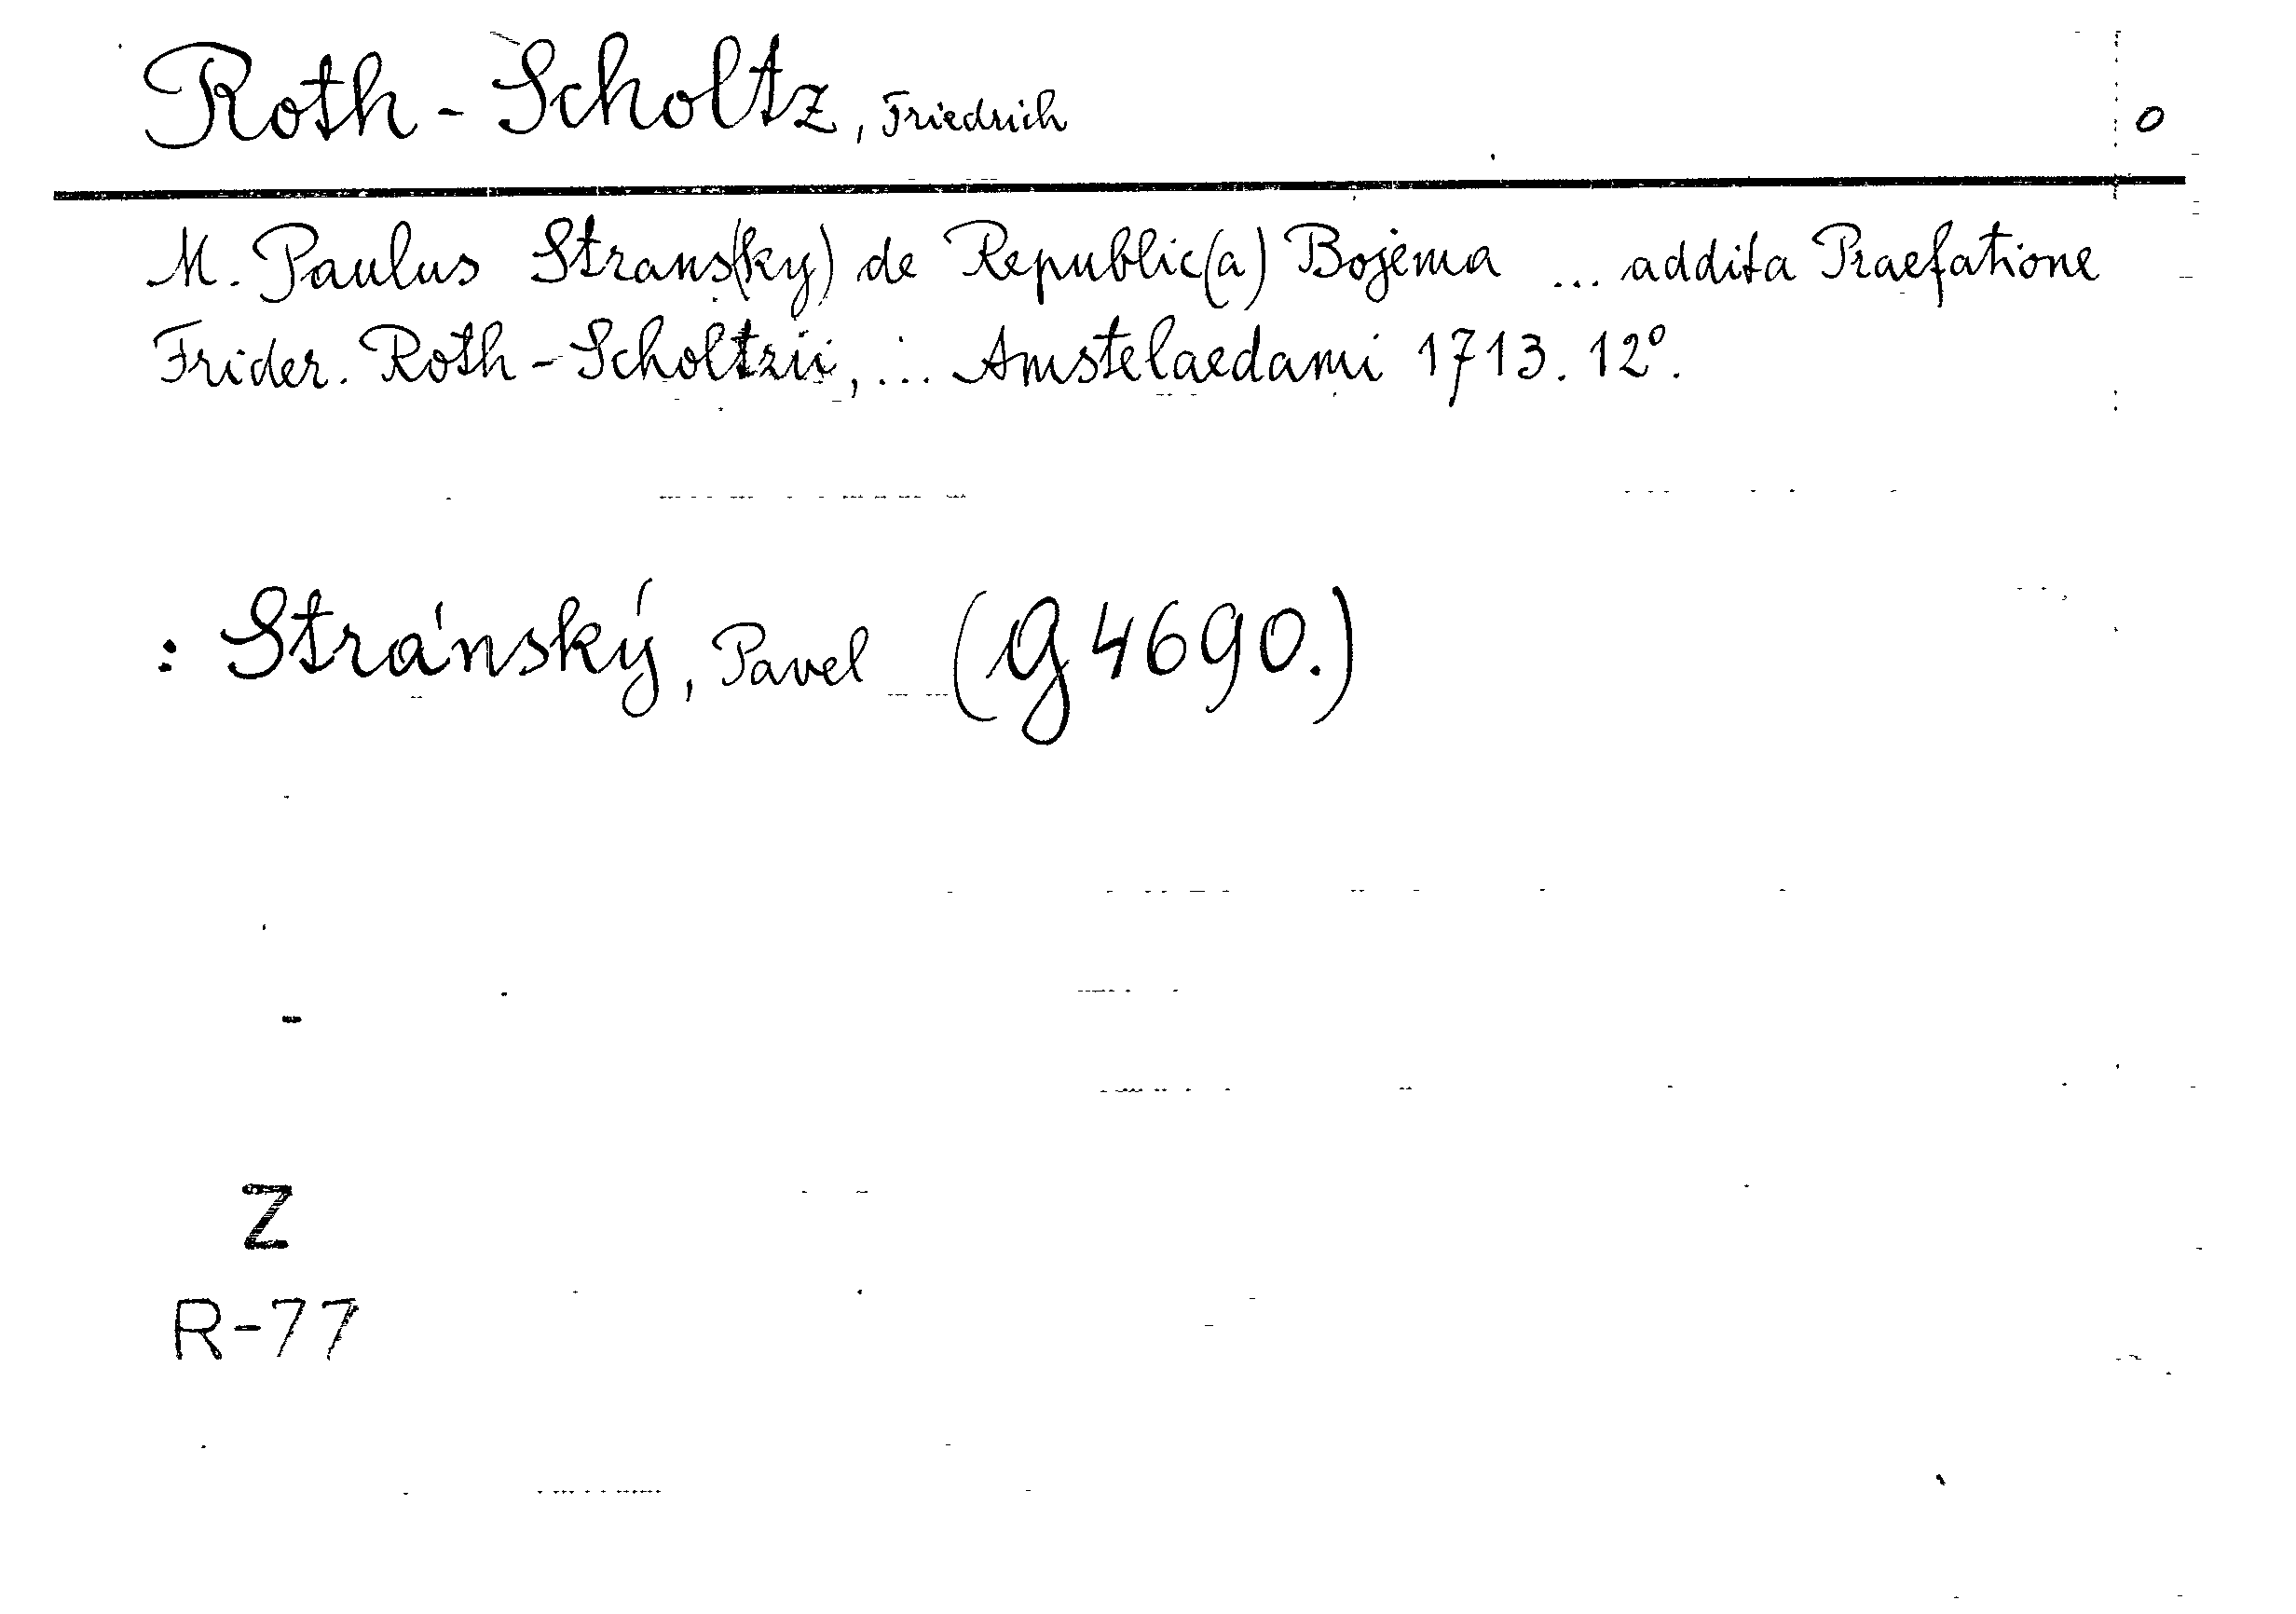 Roth-Scholtz, Friedrich o
M. Paulus Strans(ky) de Republic(a) Bojema ... addita Praefatione
Frider. Roth-Scholtzii, ... Amstelaedami 1713. 12°.
: Stránský, Pavel (G 4690.)
Z
R-77